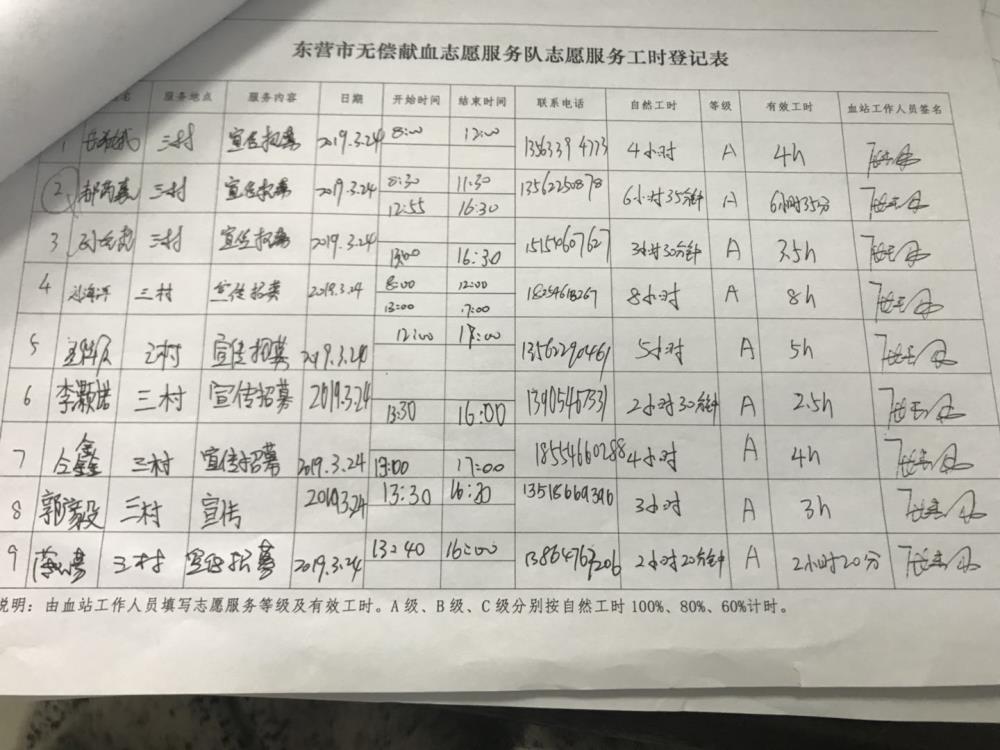 东营市无偿献血志愿服务队志愿服务工时登记表
名 服务地点 服务内容 日期 开始时间 结束时间 联系电话 自然工时 等级 有效工时 血站工作人员签名
1 三村 宣传招募 2019.3.24 8:00 12:00 13563394773 4小时 A 4h
2 三村 宣传招募 2019.3.24 8:30 11:30 13562250878 6小时35分钟 A 6小时35分
12:55 16:30
3 三村 宣传招募 2019.3.24 13:00 16:30 15154607627 3小时30分钟 A 3.5h
4 三村 宣传招募 2019.3.24 8:00 12:00 18254618267 8小时 A 8h
13:00 17:00
5 三村 宣传招募 2019.3.24 12:00 17:00 13562290461 5小时 A 5h
6 李灏诺 三村 宣传招募 2019.3.24 13:30 16:00 13905467331 2小时30分钟 A 2.5h
7 仝鑫 三村 宣传招募 2019.3.24 13:00 17:00 18554660288 4小时 A 4h
8 郭家毅 三村 宣传 2019.3.24 13:30 16:30 13518669396 3小时 A 3h
9 三村 宣传招募 2019.3.24 13:40 16:00 13864767206 2小时20分钟 A 2小时20分
说明：由血站工作人员填写志愿服务等级及有效工时。A级、B级、C级分别按自然工时100%、80%、60%计时。